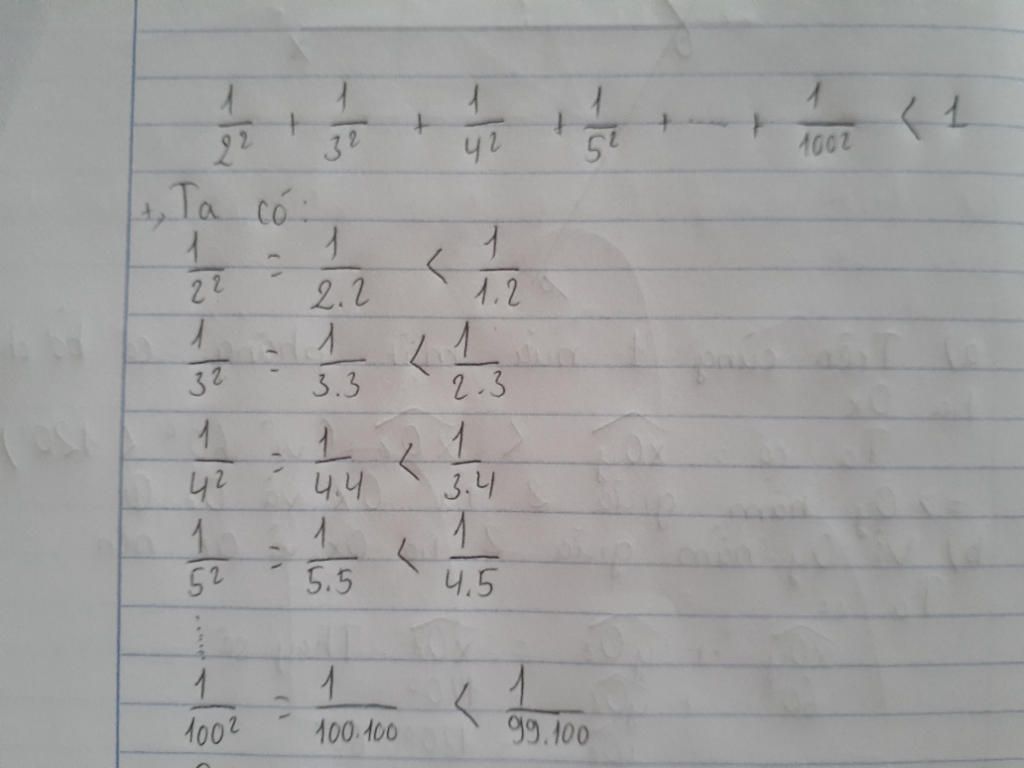 1/2² + 1/3² + 1/4² + 1/5² + ..... + 1/100² < 1
+, Ta có:
1/2² = 1/2.2 < 1/1.2
1/3² = 1/3.3 < 1/2.3
1/4² = 1/4.4 < 1/3.4
1/5² = 1/5.5 < 1/4.5
......
1/100² = 1/100.100 < 1/99.100